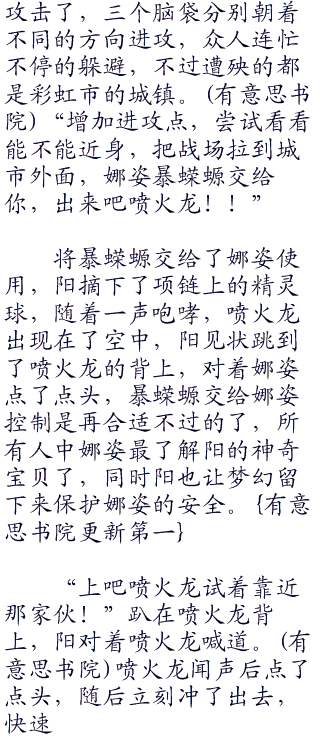 攻击了，三个脑袋分别朝着
不同的方向进攻，众人连忙
不停的躲避，不过遭殃的都
是彩虹市的城镇。(有意思书
院)“增加进攻点，尝试看看
能不能近身，把战场拉到城
市外面，娜姿暴蝾螈交给
你，出来吧喷火龙！！”
将暴蝾螈交给了娜姿使
用，阳摘下了项链上的精灵
球，随着一声咆哮，喷火龙
出现在了空中，阳见状跳到
了喷火龙的背上，对着娜姿
点了点头，暴蝾螈交给娜姿
控制是再合适不过的了，所
有人中娜姿最了解阳的神奇
宝贝了，同时阳也让梦幻留
下来保护娜姿的安全。{有意
思书院更新第一}
“上吧喷火龙试着靠近
那家伙！”趴在喷火龙背
上，阳对着喷火龙喊道。(有
意思书院)喷火龙闻声后点了
点头，随后立刻冲了出去，
快速